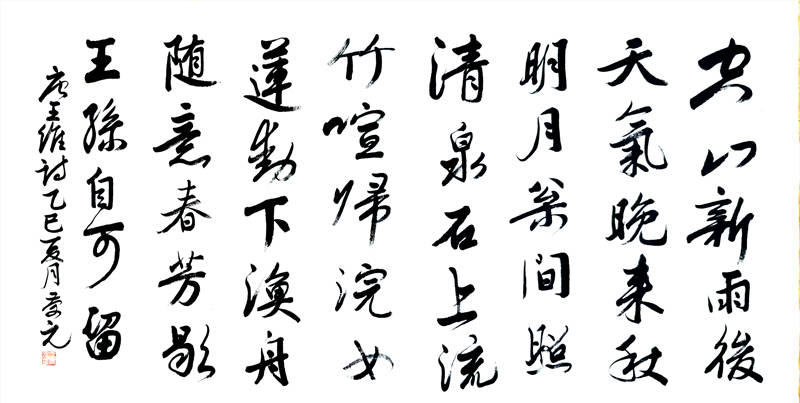 空山新雨後
天氣晚来秋
明月松间照
清泉石上流
竹喧歸浣女
蓮動下漁舟
随意春芳歇
王孫自可留
唐王维詩乙巳夏月元